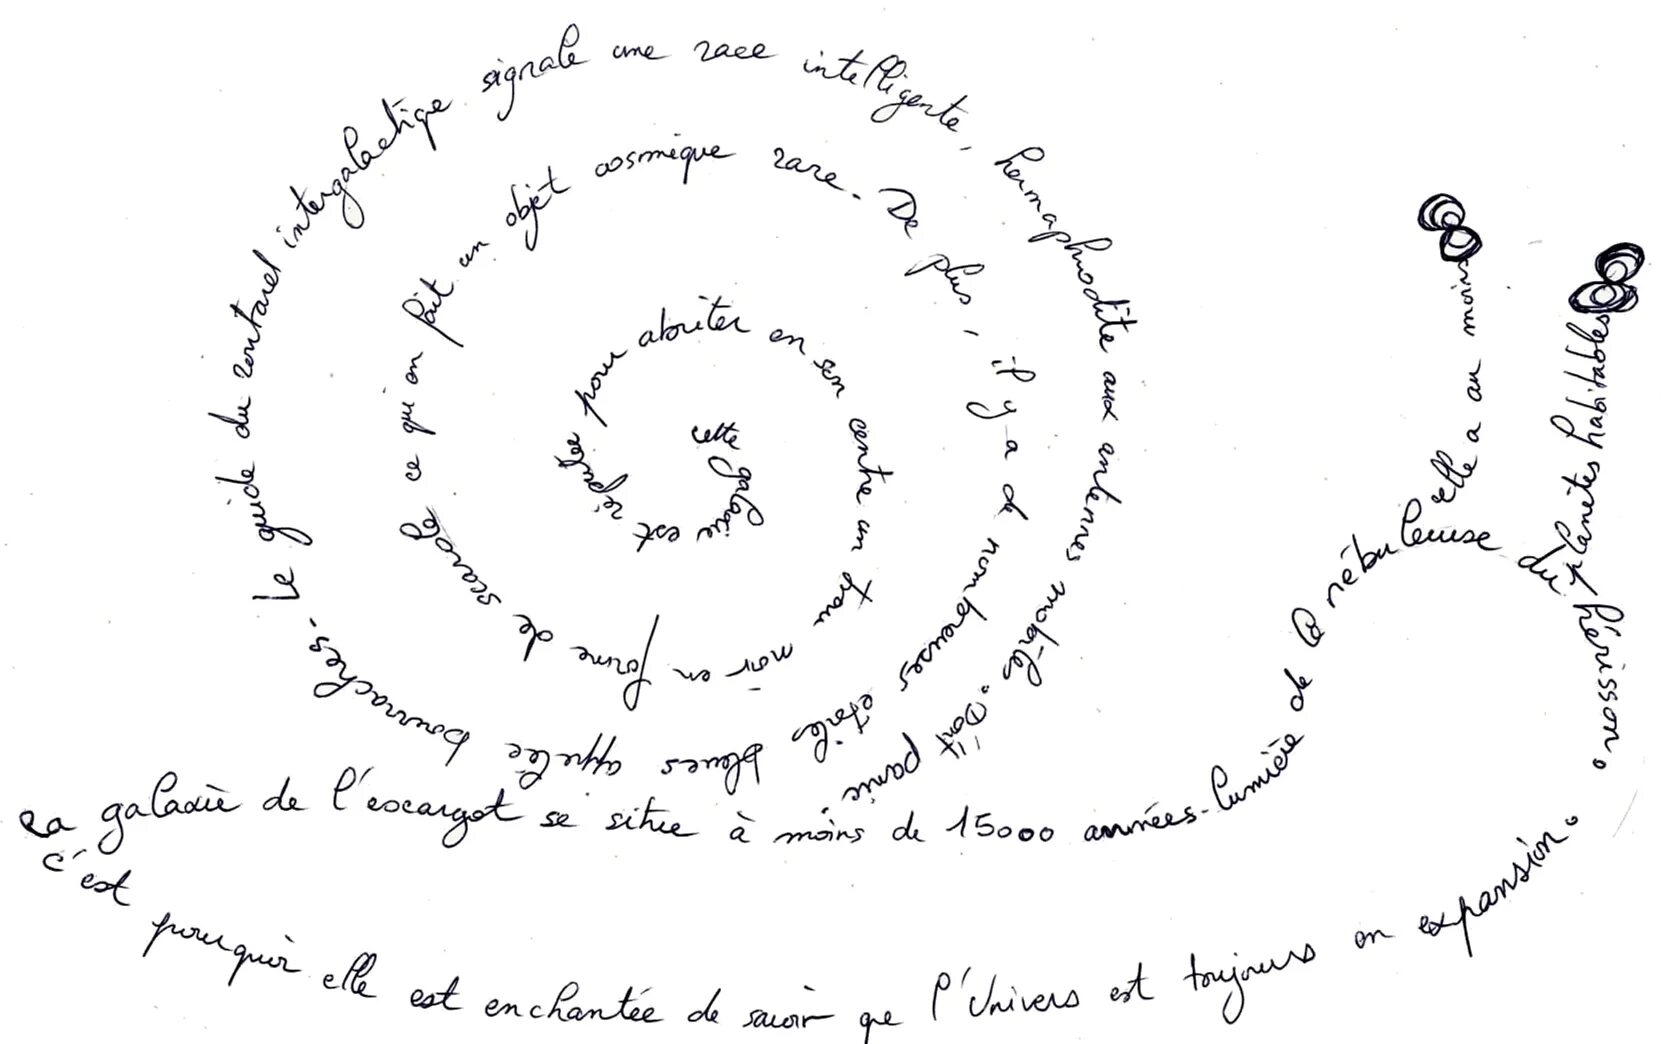 cette galaxie est réputée pour abriter en son centre un trou noir en forme de scarole ce qui en fait un objet cosmique rare. De plus, il y a de nombreuses étoiles bleues appelée bourraches. Le guide du routard intergalactique signale une race intelligente, hermaphrodite aux antennes mobiles. "Don't panic".
La galaxie de l'escargot se situe à moins de 15000 années-lumière de la nébuleuse du hérisson.
elle a au moins
planètes habitables
C'est pourquoi elle est enchantée de savoir que l'Univers est toujours en expansion.